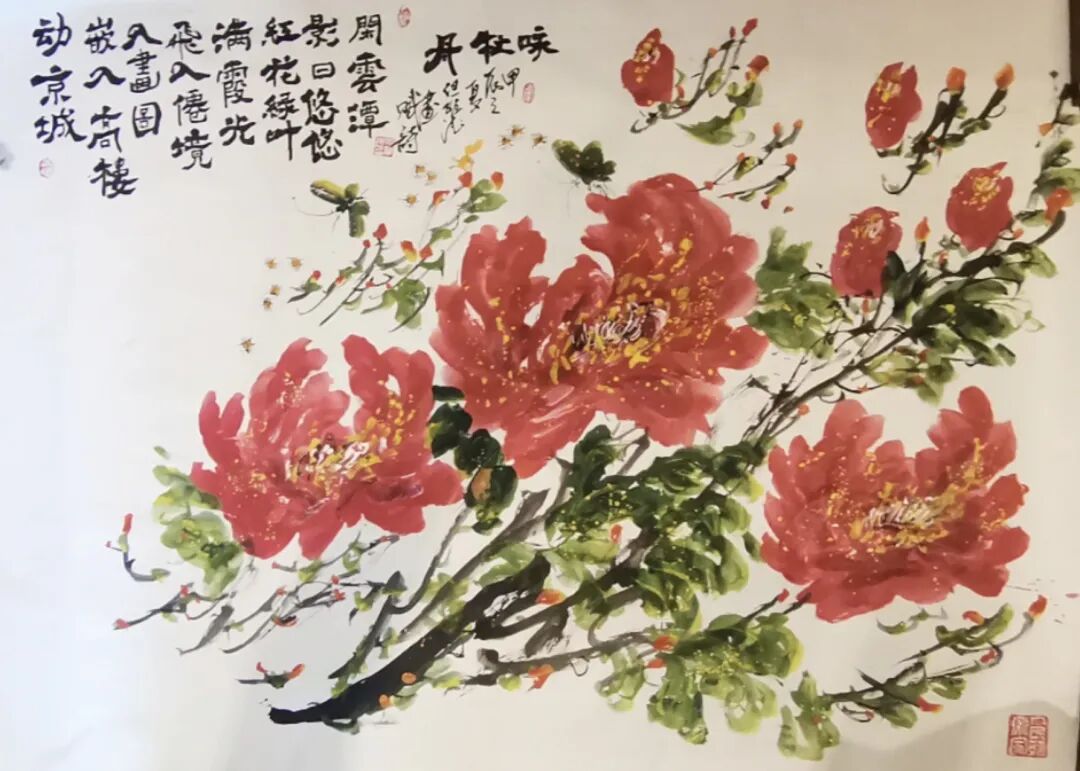 咏牡丹
甲辰之
夏
畫
賦詩
閑雲潭
影日悠悠
紅花綠叶
满霞光
飛入僊境
入畫圖
嵌入高樓
动京城